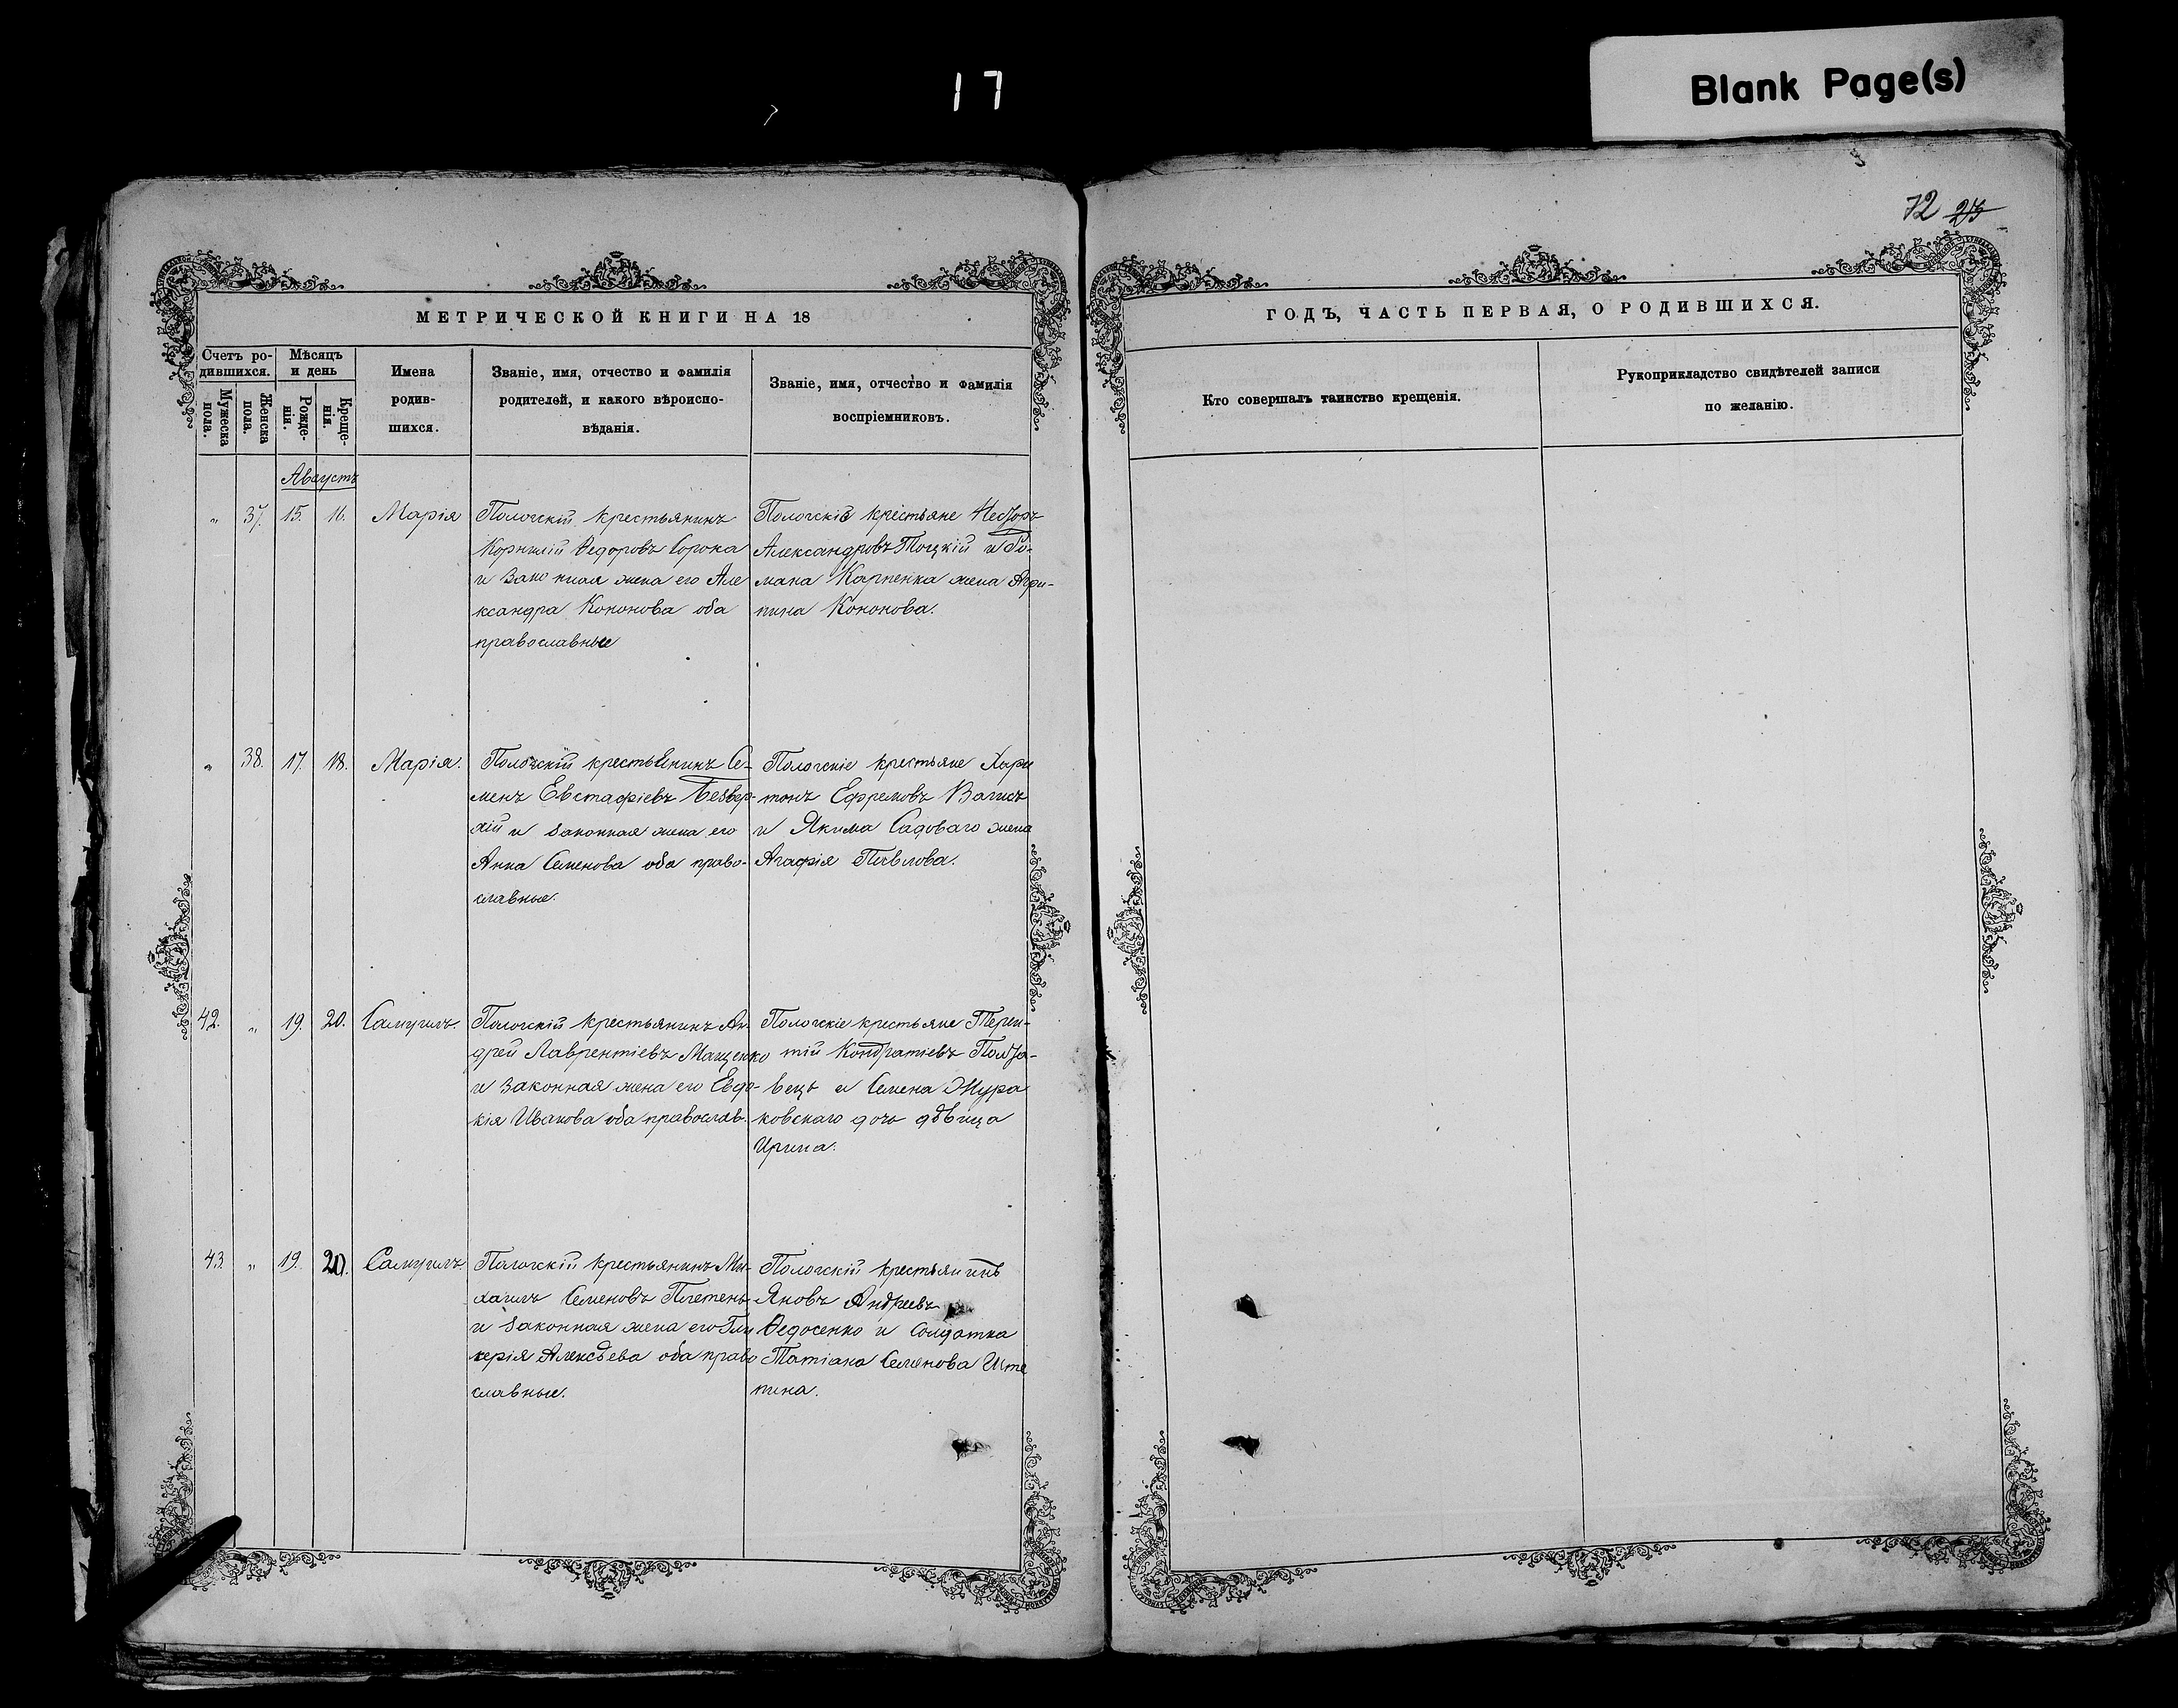 17
Blank Page(s)
72 25
МЕТРИЧЕСКОЙ КНИГИ НА 18
Счетъ ро-
дившихся.
Мужеска
пола.
Женска
пола.
Мѣсяцъ
и день
Рожде-
нія.
Креще-
нія.
Имена
родив-
шихся.
Званіе, имя, отчество и фамилія
родителей, и какого вѣроиспо-
вѣданія.
Званіе, имя, отчество и фамилія
воспріемниковъ.
Августъ
„ 37. 15. 16. Марія
Пологскій крестьянинъ
Корнилій Ѳедоровъ Сорока
и законная жена его Але
ксандра Кононова оба
православные
Пологскіе крестьяне Несторъ
Александровъ Тоцкій и Ро-
мана Карпенка жена Агри-
пина Кононова.
„ 38. 17. 18. Марія.
Пологскій крестьянинъ Се-
менъ Евстафіевъ Безвер-
хій и законная жена его
Анна Семенова оба право-
славные.
Пологскіе крестьяне Хари
тонъ Ефремовъ
и Якима Садоваго жена
Агафія Павлова.
42. „ 19. 20. Самуилъ.
Пологскій крестьянинъ Ан-
дрей Лаврентіевъ Мащенко
и законная жена его Евдо-
кія Иванова оба православ.
Пологскіе крестьяне Терен-
тій Кондратіевъ Полта-
вецъ и Семена Жура
ковскаго дочь дѣвица
Ирина.
43. „ 19. 20. Самуилъ.
Пологскій крестьянинъ Ми-
хаилъ Семеновъ Плетень
и законная жена его Гли
керія Алексѣева оба право
славные.
Пологскій крестьянинъ
Яковъ Андреевъ
Ѳедосенко и солдатка
Татіана Семенова
пина.
ГОДЪ, ЧАСТЬ ПЕРВАЯ, О РОДИВШИХСЯ.
Кто совершалъ таинство крещенія.
Рукоприкладство свидѣтелей записи
по желанію.